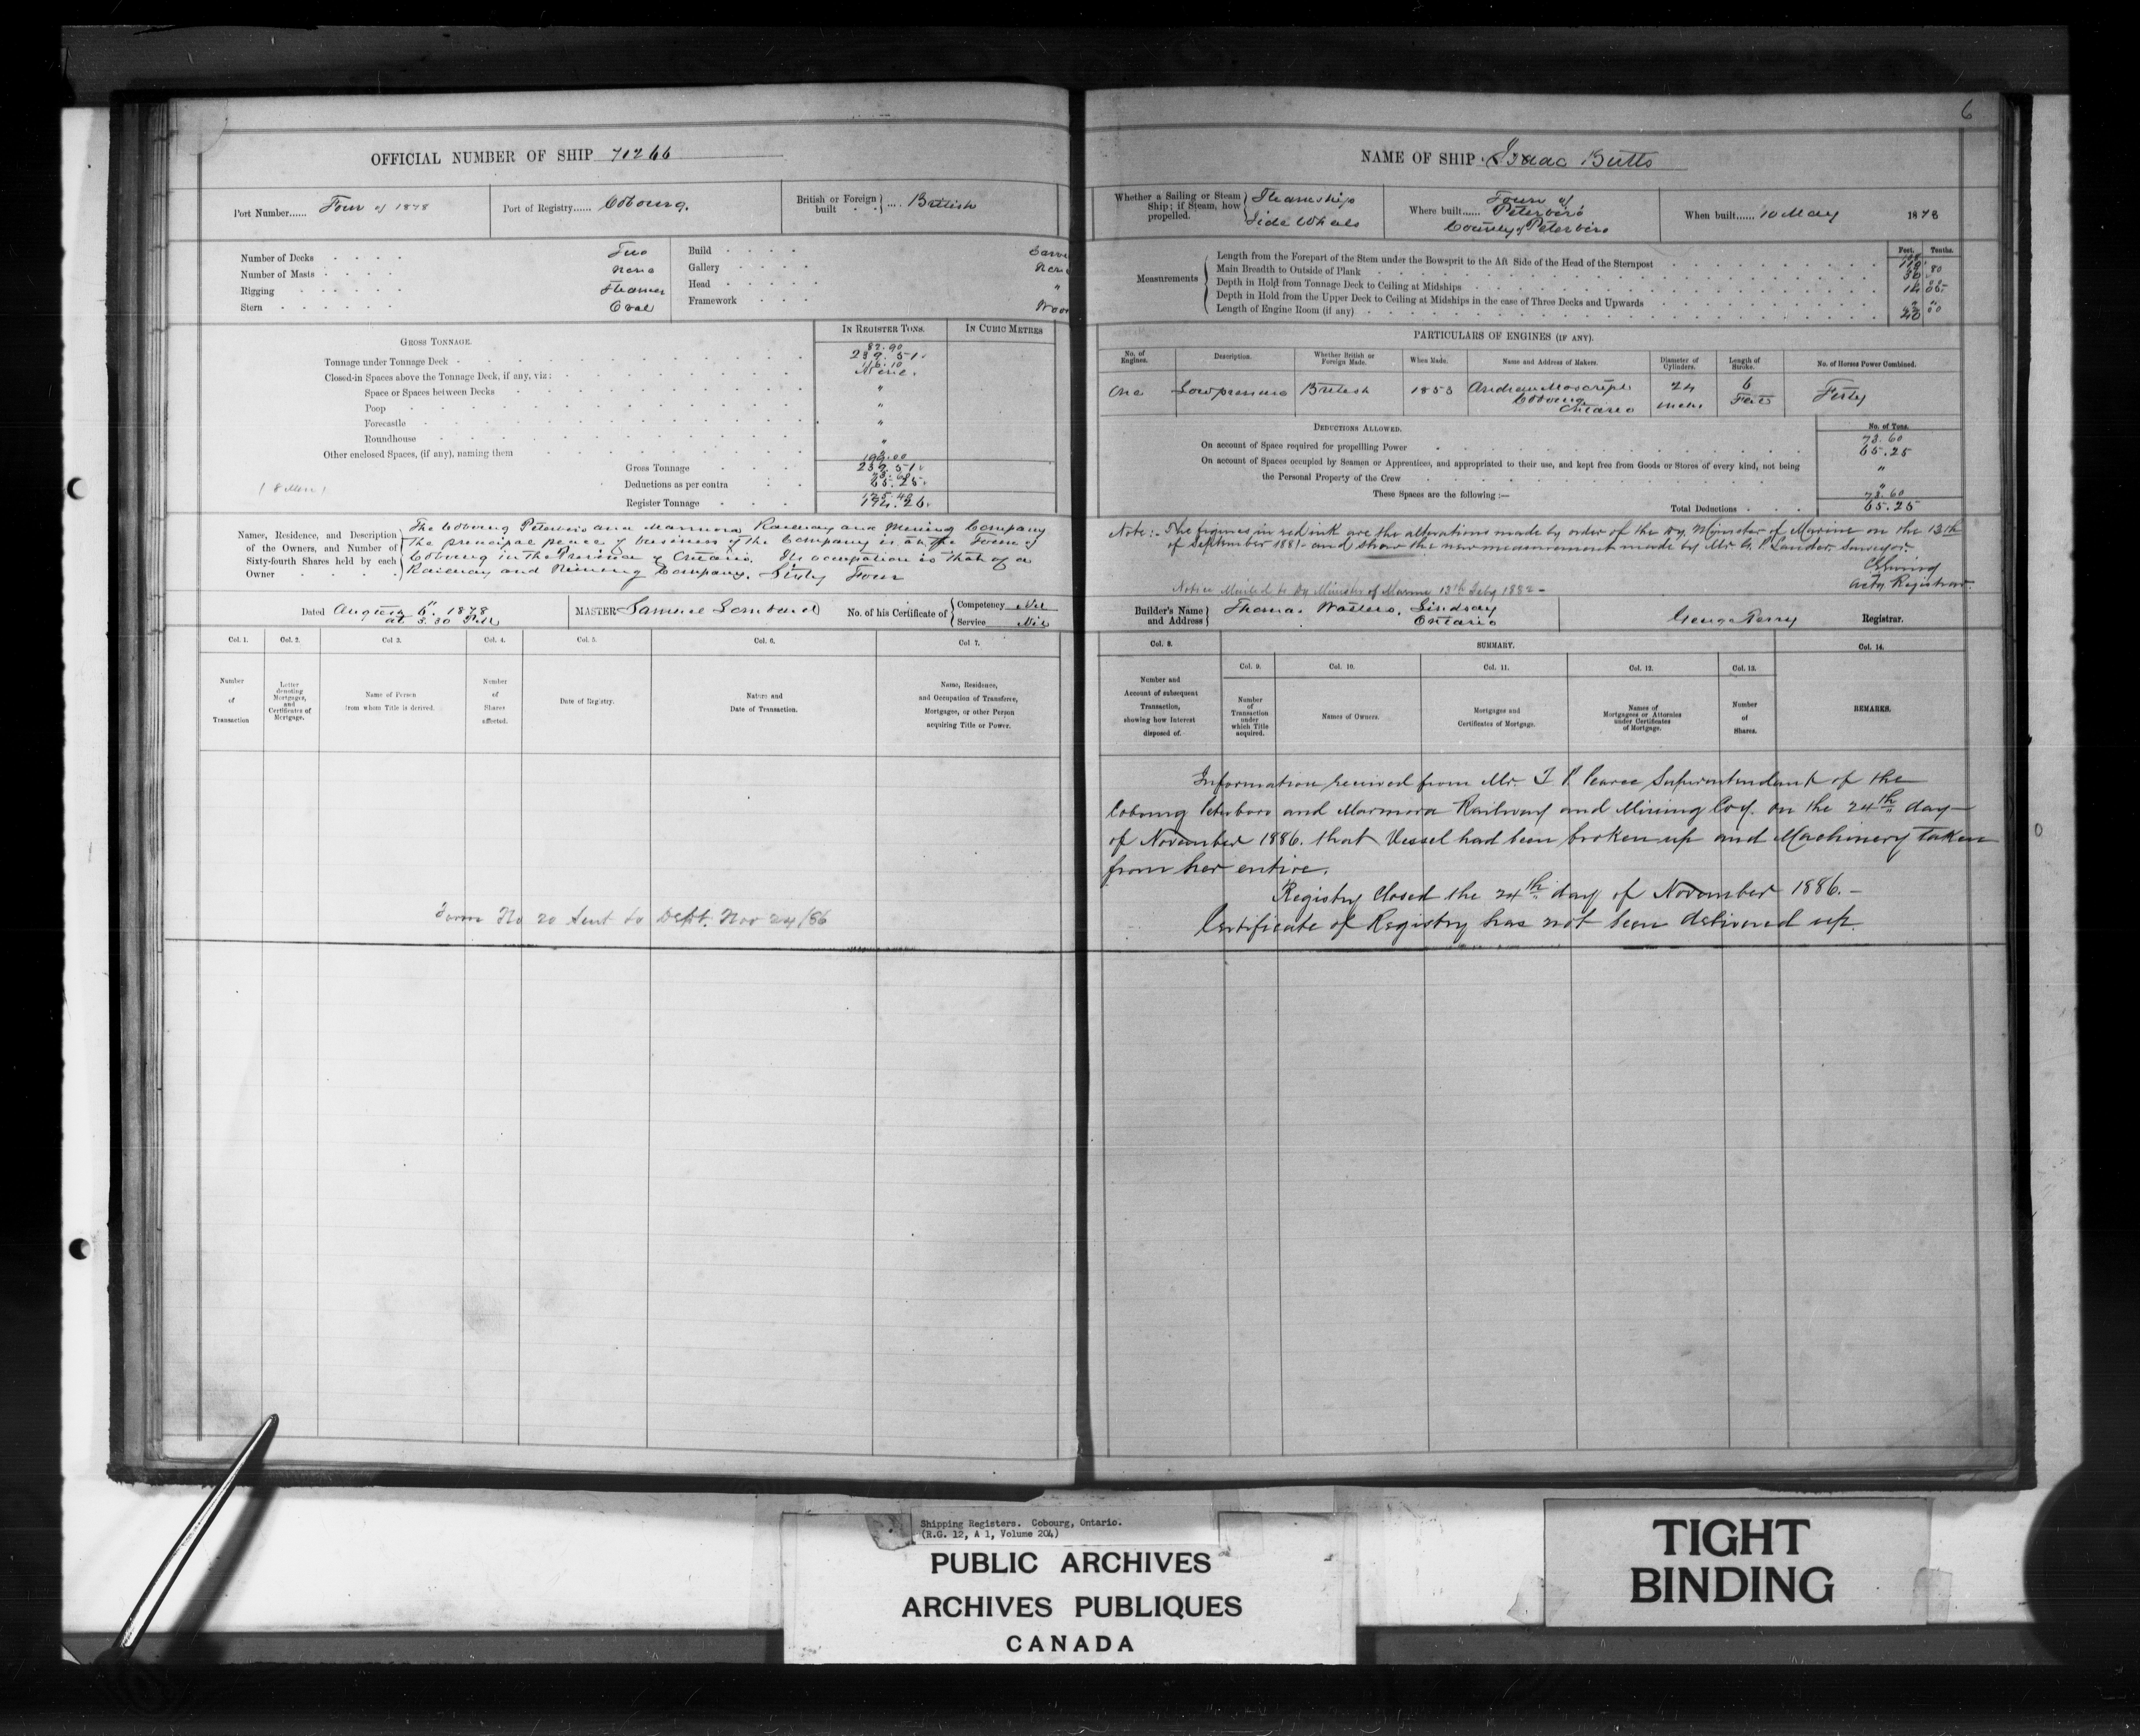 6
OFFICIAL NUMBER OF SHIP 71266
Port Number...... Four of 1878
Port of Registry...... Cobourg.
British or Foreign built .... British
Number of Decks Two
Number of Masts None
Rigging Steamer
Stern Oval
Build Carve
Gallery None
Head "
Framework Wood
IN REGISTER TONS. IN CUBIC METRES
GROSS TONNAGE.
82.90
Tonnage under Tonnage Deck 239.51.
116.10
Closed-in Spaces above the Tonnage Deck, if any, viz: None.
Space or Spaces between Decks "
Poop "
Forecastle "
Roundhouse "
Other enclosed Spaces, (if any), naming them "
199.00
Gross Tonnage 239.51.
73.60
Deductions as per contra 65.25.
125.40
Register Tonnage 174.26.
(8 Men)
Names, Residence, and Description of the Owners, and Number of Sixty-fourth Shares held by each Owner
The Cobourg Peterboro and Marmora Railway and Mining Company
the principal place of business of the Company is at the Town of
Cobourg in the Province of Ontario. Its occupation is that of a
Railway and Mining Company. Sixty Four
Dated August 6". 1878
at 3.30 P.M
MASTER Samuel
No. of his Certificate of
Competency Nil
Service Nil
Col. 1. Col. 2. Col 3. Col. 4. Col. 5. Col. 6. Col 7.
Number of Transaction
Letter denoting Mortgages, and Certificates of Mortgage.
Name of Person from whom Title is derived.
Number of Shares affected.
Date of Registry.
Nature and Date of Transaction.
Name, Residence, and Occupation of Transferee, Mortgagee, or other Person acquiring Title or Power.
Form No 20 Sent to Dept. Nov 24/86
NAME OF SHIP. Isaac Butts
Whether a Sailing or Steam Ship; if Steam, how propelled.
Steamship
Side Wheels
Where built...... Town of
Peterboro
County of Peterboro
When built...... 10 May 1878
Feet. Tenths.
Measurements
Length from the Forepart of the Stem under the Bowsprit to the Aft Side of the Head of the Sternpost
Main Breadth to Outside of Plank
Depth in Hold from Tonnage Deck to Ceiling at Midships
Depth in Hold from the Upper Deck to Ceiling at Midships in the case of Three Decks and Upwards
Length of Engine Room (if any)
PARTICULARS OF ENGINES (IF ANY).
No. of Engines. Description. Whether British or Foreign Made. When Made. Name and Address of Makers. Diameter of Cylinders. Length of Stroke. No. of Horses Power Combined.
One Low pressure British 1853 Andrew Moscript Cobourg Ontario 24 inches 6 Feet Forty
DEDUCTIONS ALLOWED. No. of Tons.
73.60
On account of Space required for propelling Power 65.25
On account of Spaces occupied by Seamen or Apprentices, and appropriated to their use, and kept free from Goods or Stores of every kind, not being
the Personal Property of the Crew "
These Spaces are the following :— "
73.60
Total Deductions 65.25
Note:- The figures in red ink are the alterations made by order of the Dy. Minister of Marine on the 13th
of September 1881- and show the new measurement made by Mr. G. P. Sander. Surveyor.
Actg Registrar.
Notice Mailed to Dy Minister of Marine 13th Feby 1882-
Builder's Name and Address
Thomas Walters, Lindsay
Ontario
George Perry Registrar.
Col. 8. SUMMARY. Col. 14.
Col. 9. Col. 10. Col. 11. Col. 12. Col. 13.
Number and Account of subsequent Transaction, showing how Interest disposed of.
Number of Transaction under which Title acquired.
Names of Owners.
Mortgages and Certificates of Mortgage.
Names of Mortgagees or Attornies under Certificates of Mortgage.
Number of Shares.
REMARKS.
Information received from Mr. T. P. Pearce Superintendant of the
Cobourg Peterboro and Marmora Railway and Mining Coy. on the 24th day
of November 1886. that Vessel had been broken up and Machinery taken
from her entire.
Registry Closed the 24th day of November 1886.-
Certificate of Registry has not been delivered up.
Shipping Registers. Cobourg, Ontario.
(R.G. 12, A 1, Volume 204)
PUBLIC ARCHIVES
ARCHIVES PUBLIQUES
CANADA
TIGHT
BINDING